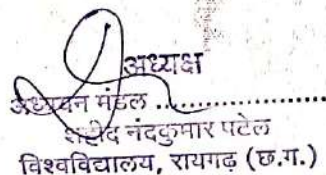 अध्यक्ष
अध्ययन मंडल ..............................
शहीद नंदकुमार पटेल
विश्वविद्यालय, रायगढ़ (छ.ग.)